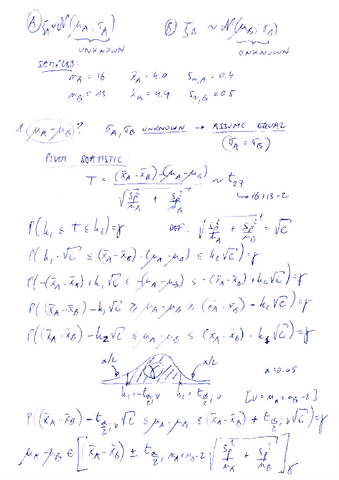 Ⓐ ξA ~ N(μA; σA) Ⓑ ξB ~ N(μB; σB)
UNKNOWN UNKNOWN
SAMPLES:
nA = 16 x̄A = 4.0 Sn,A = 0.4
nB = 13 x̄B = 4.4 Sn,B = 0.5
1. μA - μB? σA, σB UNKNOWN → ASSUME EQUAL
(σA = σB)
PIVOT STATISTIC:
T = ((x̄A - x̄B) - (μA - μB)) / √(Sp²/nA + Sp²/nB) ~ t27
↳ 16+13-2
P(k1 ≤ T ≤ k2) = γ DEF.: √(Sp²/nA + Sp²/nB) = √C
P(k1·√C ≤ (x̄A - x̄B) - (μA - μB) ≤ k2√C) = γ
P(-(x̄A - x̄B) + k1√C ≤ -(μA - μB) ≤ -(x̄A - x̄B) + k2√C) = γ
P((x̄A - x̄B) - k1√C ≥ μA - μB ≥ (x̄A - x̄B) - k2√C) = γ
P((x̄A - x̄B) - k2√C ≤ μA - μB ≤ (x̄A - x̄B) - k1√C) = γ
α/2 γ α/2 α = 0.05
k1 = -tα/2,ν k2 = tα/2,ν [ν = nA + nB - 2]
P((x̄A - x̄B) - tα/2;ν √C ≤ μA - μB ≤ (x̄A - x̄B) + tα/2;ν √C) = γ
μA - μB ∈ [(x̄A - x̄B) ± tα/2; nA+nB-2 √(Sp²/nA + Sp²/nB)]γ